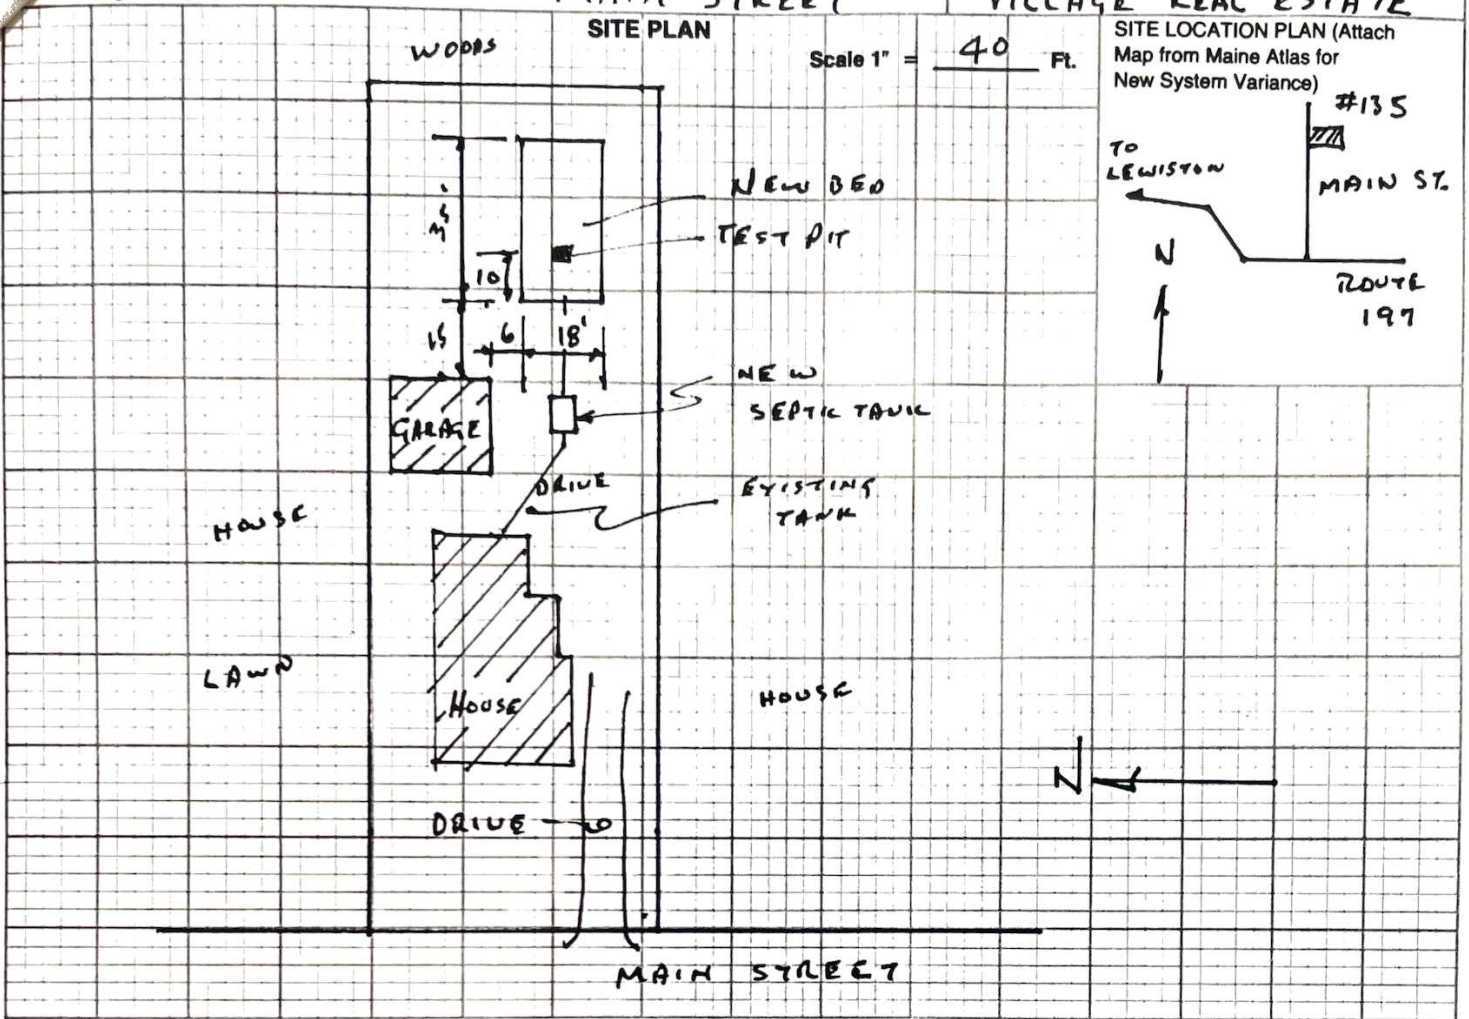 MAIN STREET
VILLAGE REAL ESTATE
SITE PLAN
Scale 1" = 40 Ft.
SITE LOCATION PLAN (Attach
Map from Maine Atlas for
New System Variance)
WOODS
#135
TO
LEWISTON
MAIN ST.
N
ROUTE
197
NEW BED
TEST PIT
35'
10
15
6
18'
NEW
SEPTIC TANK
GARAGE
DRIVE
EXISTING
TANK
HOUSE
LAWN
HOUSE
HOUSE
N
DRIVE
MAIN STREET